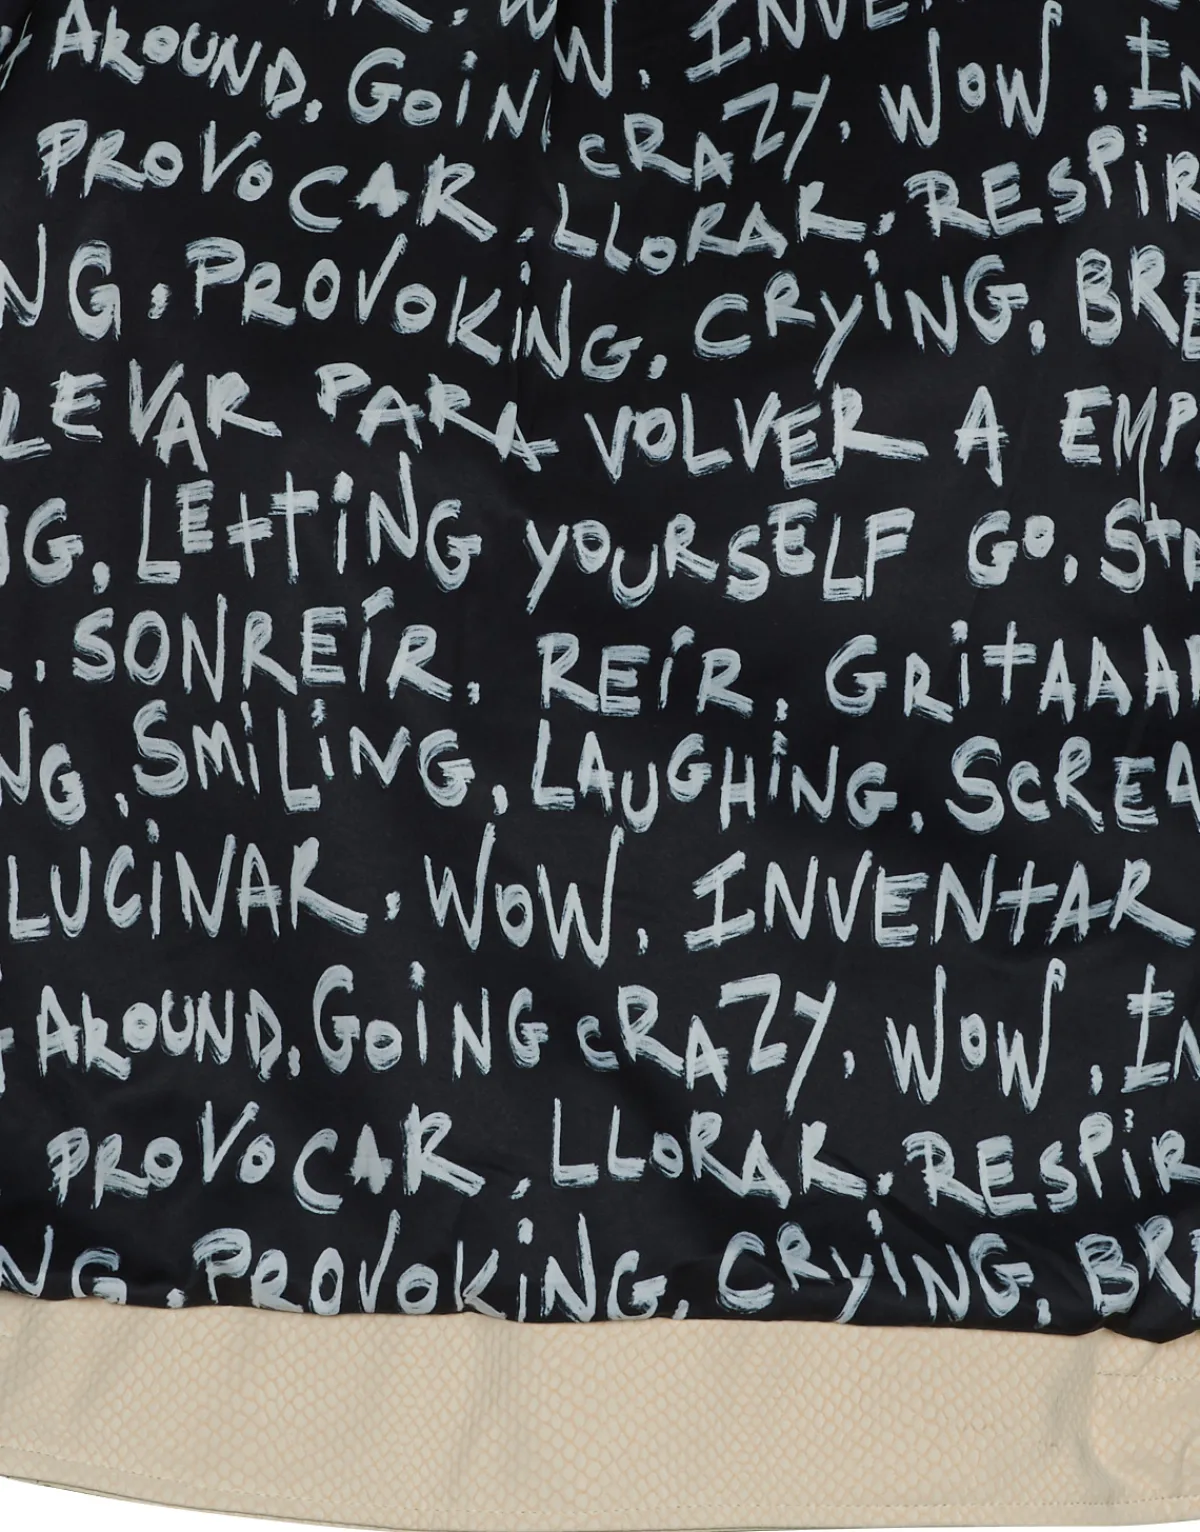 AROUND. GOiN CRAZY. WOW. IN
PROVOCAR. LLORAR. RESPiR
NG. PROVOKiNG. CRYiNG. BRE
LEVAR PARA VOLVER A EMP
NG. LEttiNG YOURSELF GO. St
. SONREÍR. REÍR. GRitAAA
NG. SMiLiNG. LAUGHiNG. SCREA
LUCiNAR. WOW. INVENtAR
AROUND. GOiNG CRAZY. WOW. IN
PROVOCAR. LLORAR. RESPiR
NG. PROVOKiNG. CRYiNG. BRE